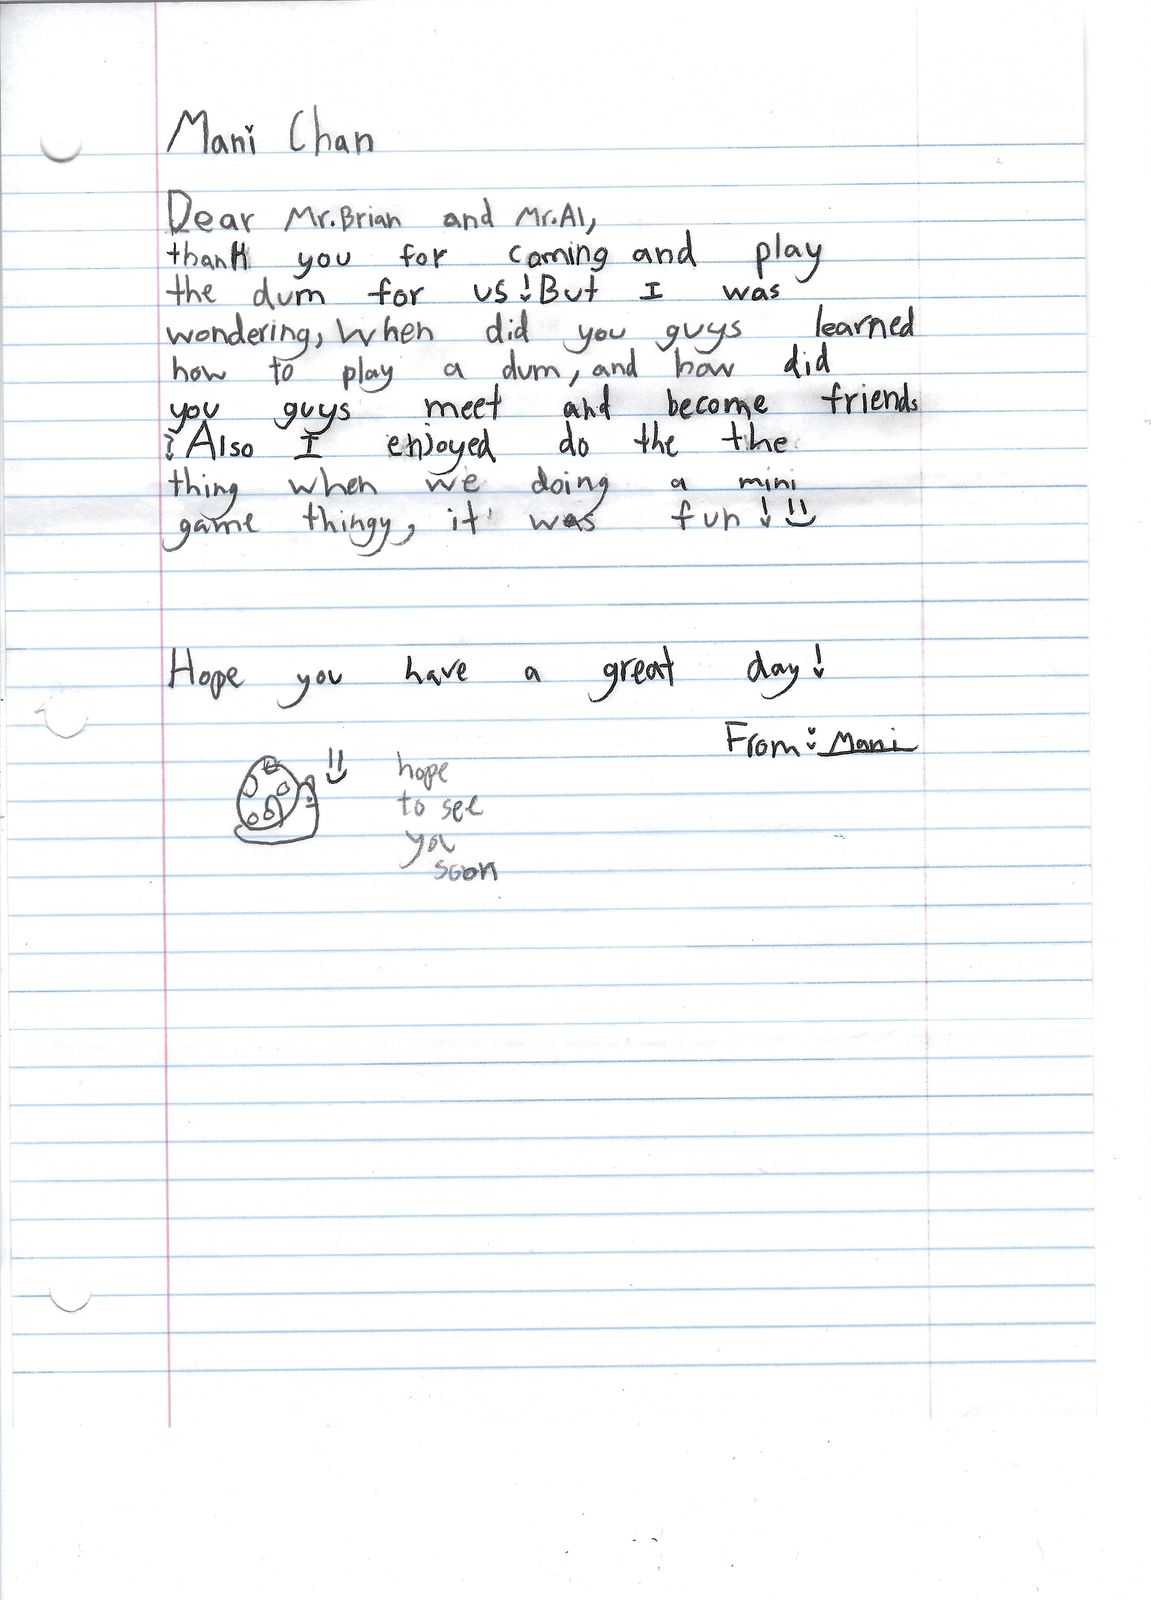 Mani Chan
Dear Mr.Brian and Mr.Al,
thank you for coming and play
the dum for us! But I was
wondering, When did you guys learned
how to play a dum, and how did
you guys meet and become friends
? Also I enjoyed do the the
thing when we doing a mini
game thingy, it was fun!
Hope you have a great day!
From: Mani
hope
to see
you
soon